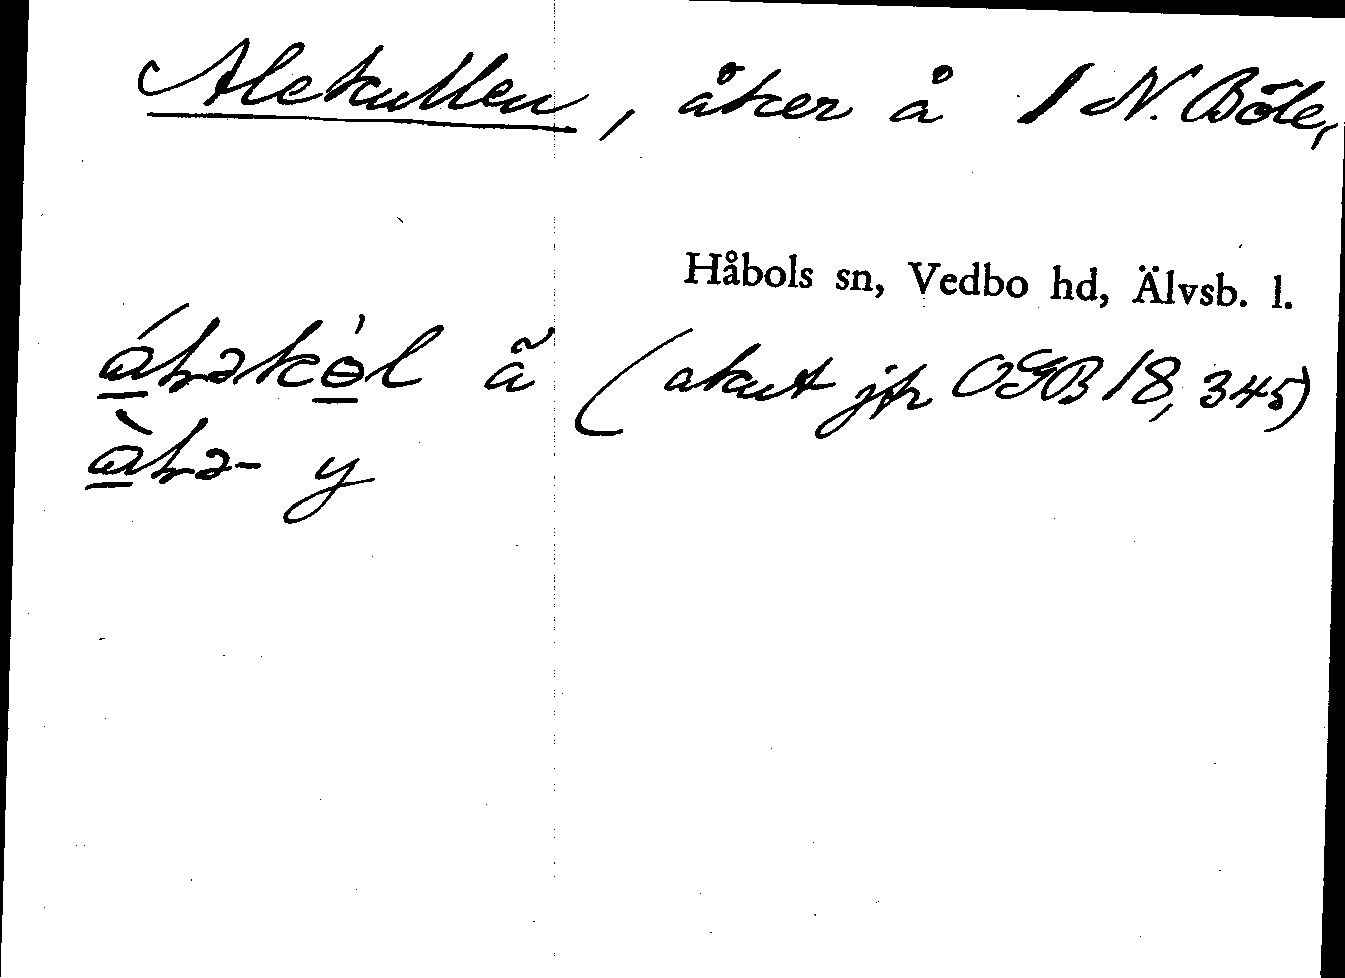 Alekullen, åker å 1 N. Böle,
Håbols sn, Vedbo hd, Älvsb. l.
ã (akut jfr OGB 18, 345)
y